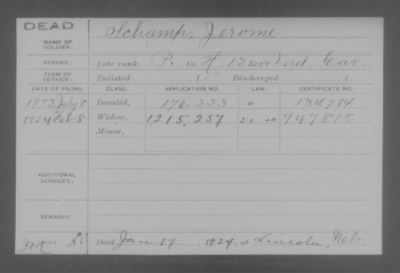 DEAD
NAME OF SOLDIER: Schamp, Jerome
SERVICE: Late rank, P. Co H, 12 Ind. Cav.
TERM OF SERVICE: Enlisted 1 Discharged 1
DATE OF FILING. CLASS. APPLICATION NO. LAW. CERTIFICATE NO.
1872 July 8 Invalid, 176.223 134794
1924 Feb-8 Widow, 1,215,257 947815
Minor,
ADDITIONAL SERVICES:
REMARKS:
Died Jan 14, 1924, at Lincoln, Neb.